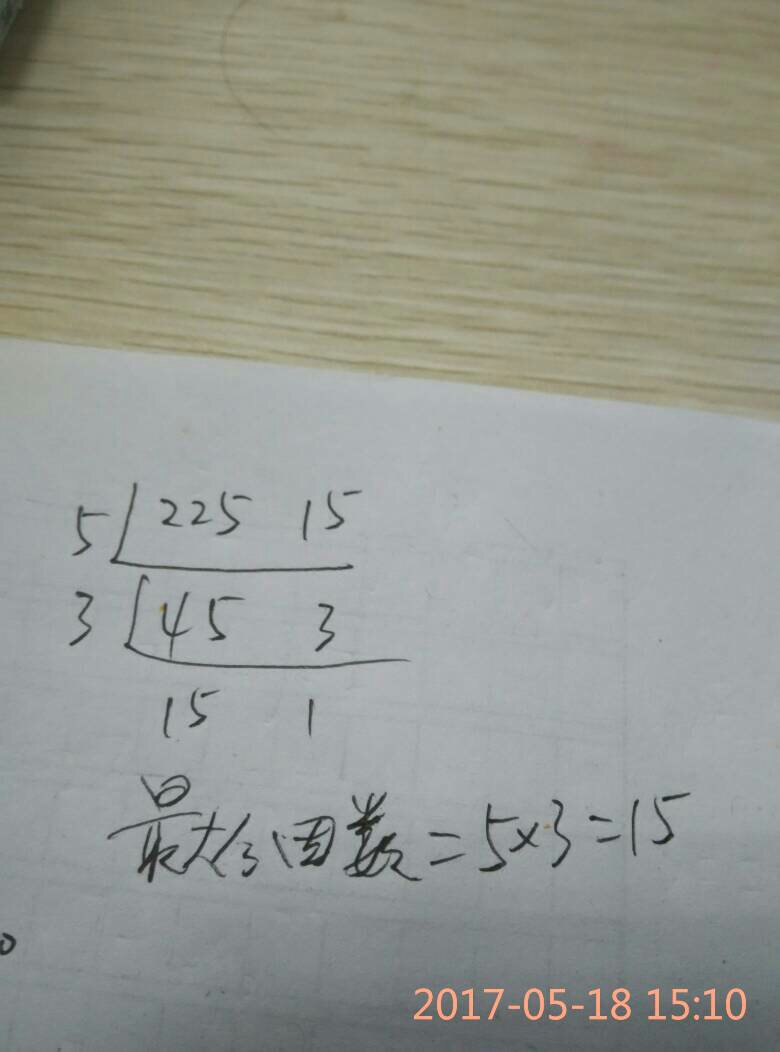 5 225 15
3 45 3
15 1
最大公因数=5×3=15
2017-05-18 15:10